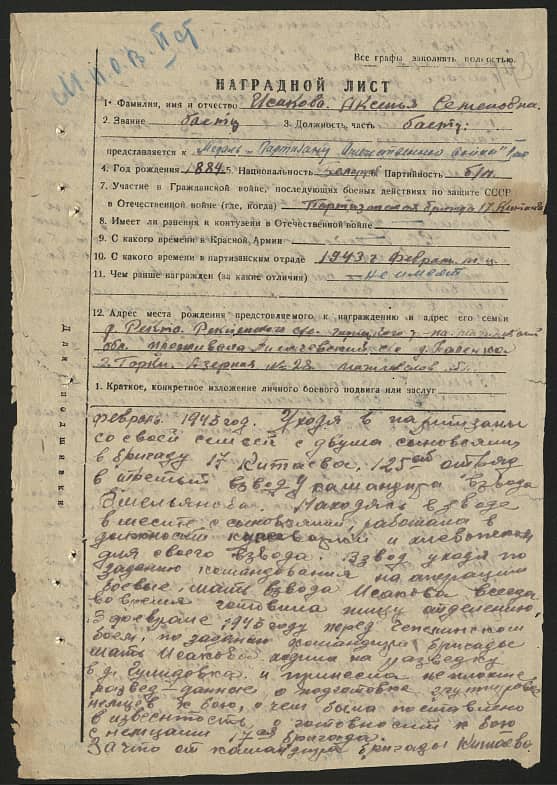 Все графы заполнять полностью.
НАГРАДНОЙ ЛИСТ
1. Фамилия, имя и отчество Исакова Аксенья Семеновна.
2. Звание 3. Должность, часть
представляется к Медаль „Партизану Отечественной войны"
4. Год рождения 1884 5. Национальность Партийность б/п.
7. Участие в Гражданской войне, последующих боевых действиях по защите СССР
в Отечественной войне (где, когда) Партизанская бригада 17
8. Имеет ли ранения к контузени в Отечественной войне
9. С какого времени в Красной Армии
10. С какого времени в партизанским отраде 1943 г февраль м-ц.
11. Чем ранше награжден (за какие отличия) – не имеет
12. Адрес места рождения предстовляемого к награждению и адрес его семьи
обл. проживала с/с д.
г. Горки. Азерная № 28
1. Краткое, конкретное изложение личного боевого подвига или заслуг
Для подшивки
февраль 1943 год. Уходя в партизаны
со своей семьей с двума сыновьями
в бригаду 17 Китаева. 125ый отряд
в третьий взвод командира взвода
Емельянова. Находясь в взводе
вместе с сыновьями, работала в
должности и
для своего взвода. Взвод уходя по
заданию командования на операции
боевые, мать взвода Исакова всегда
во время готовила пищу отделению,
В феврале 1943 году перед
боем, по заданию командира бригады
мать Исакова ходила на разведку
в д. и принесла
развед-данные о подготовке
немцев к бою, о чем была поставлено
в известность о готовности к бою
с немцами 17ая бригада.
За что от командира бригады Китаева